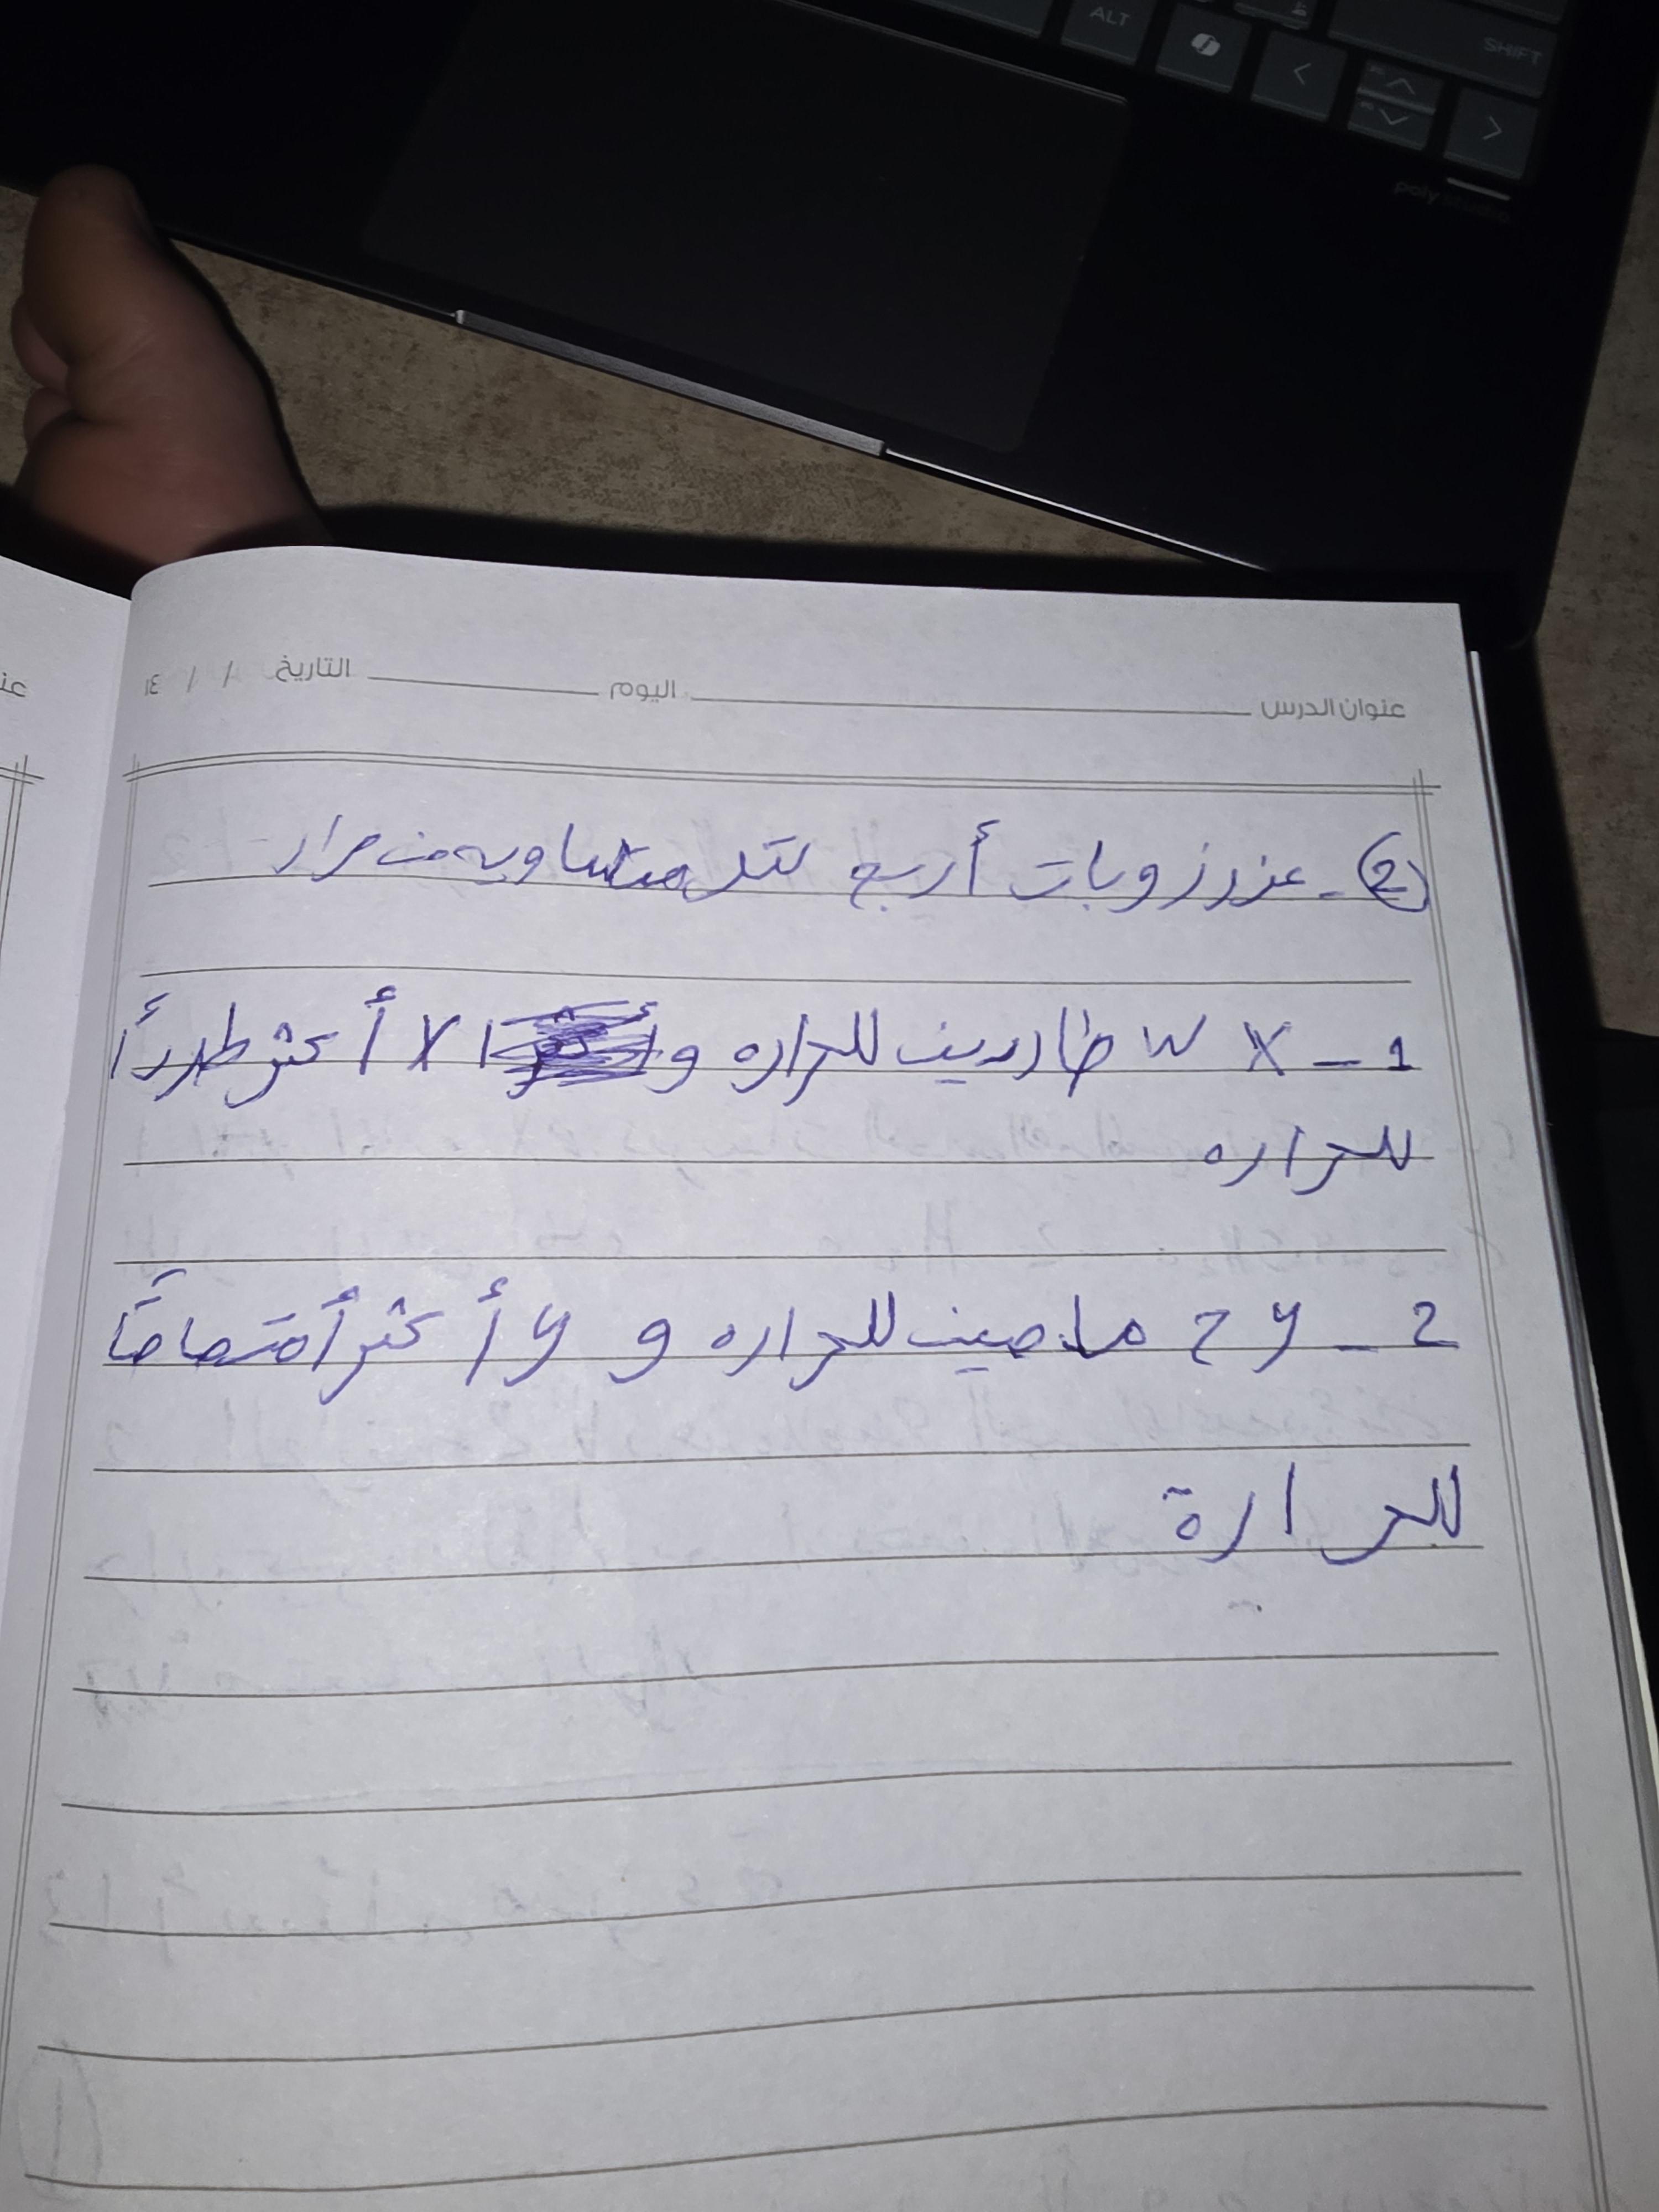 ALT
SHIFT
poly studio
عنوان الدرس اليوم التاريخ / / ١٤
2 - عند ذوبات أربع كتل متساويه من مواد
1 - X W طاردين للحراره و X أكثر طرداً
للحراره
2 - y z ماصين للحراره و y أكثر أمتصاصاً
للحرارة